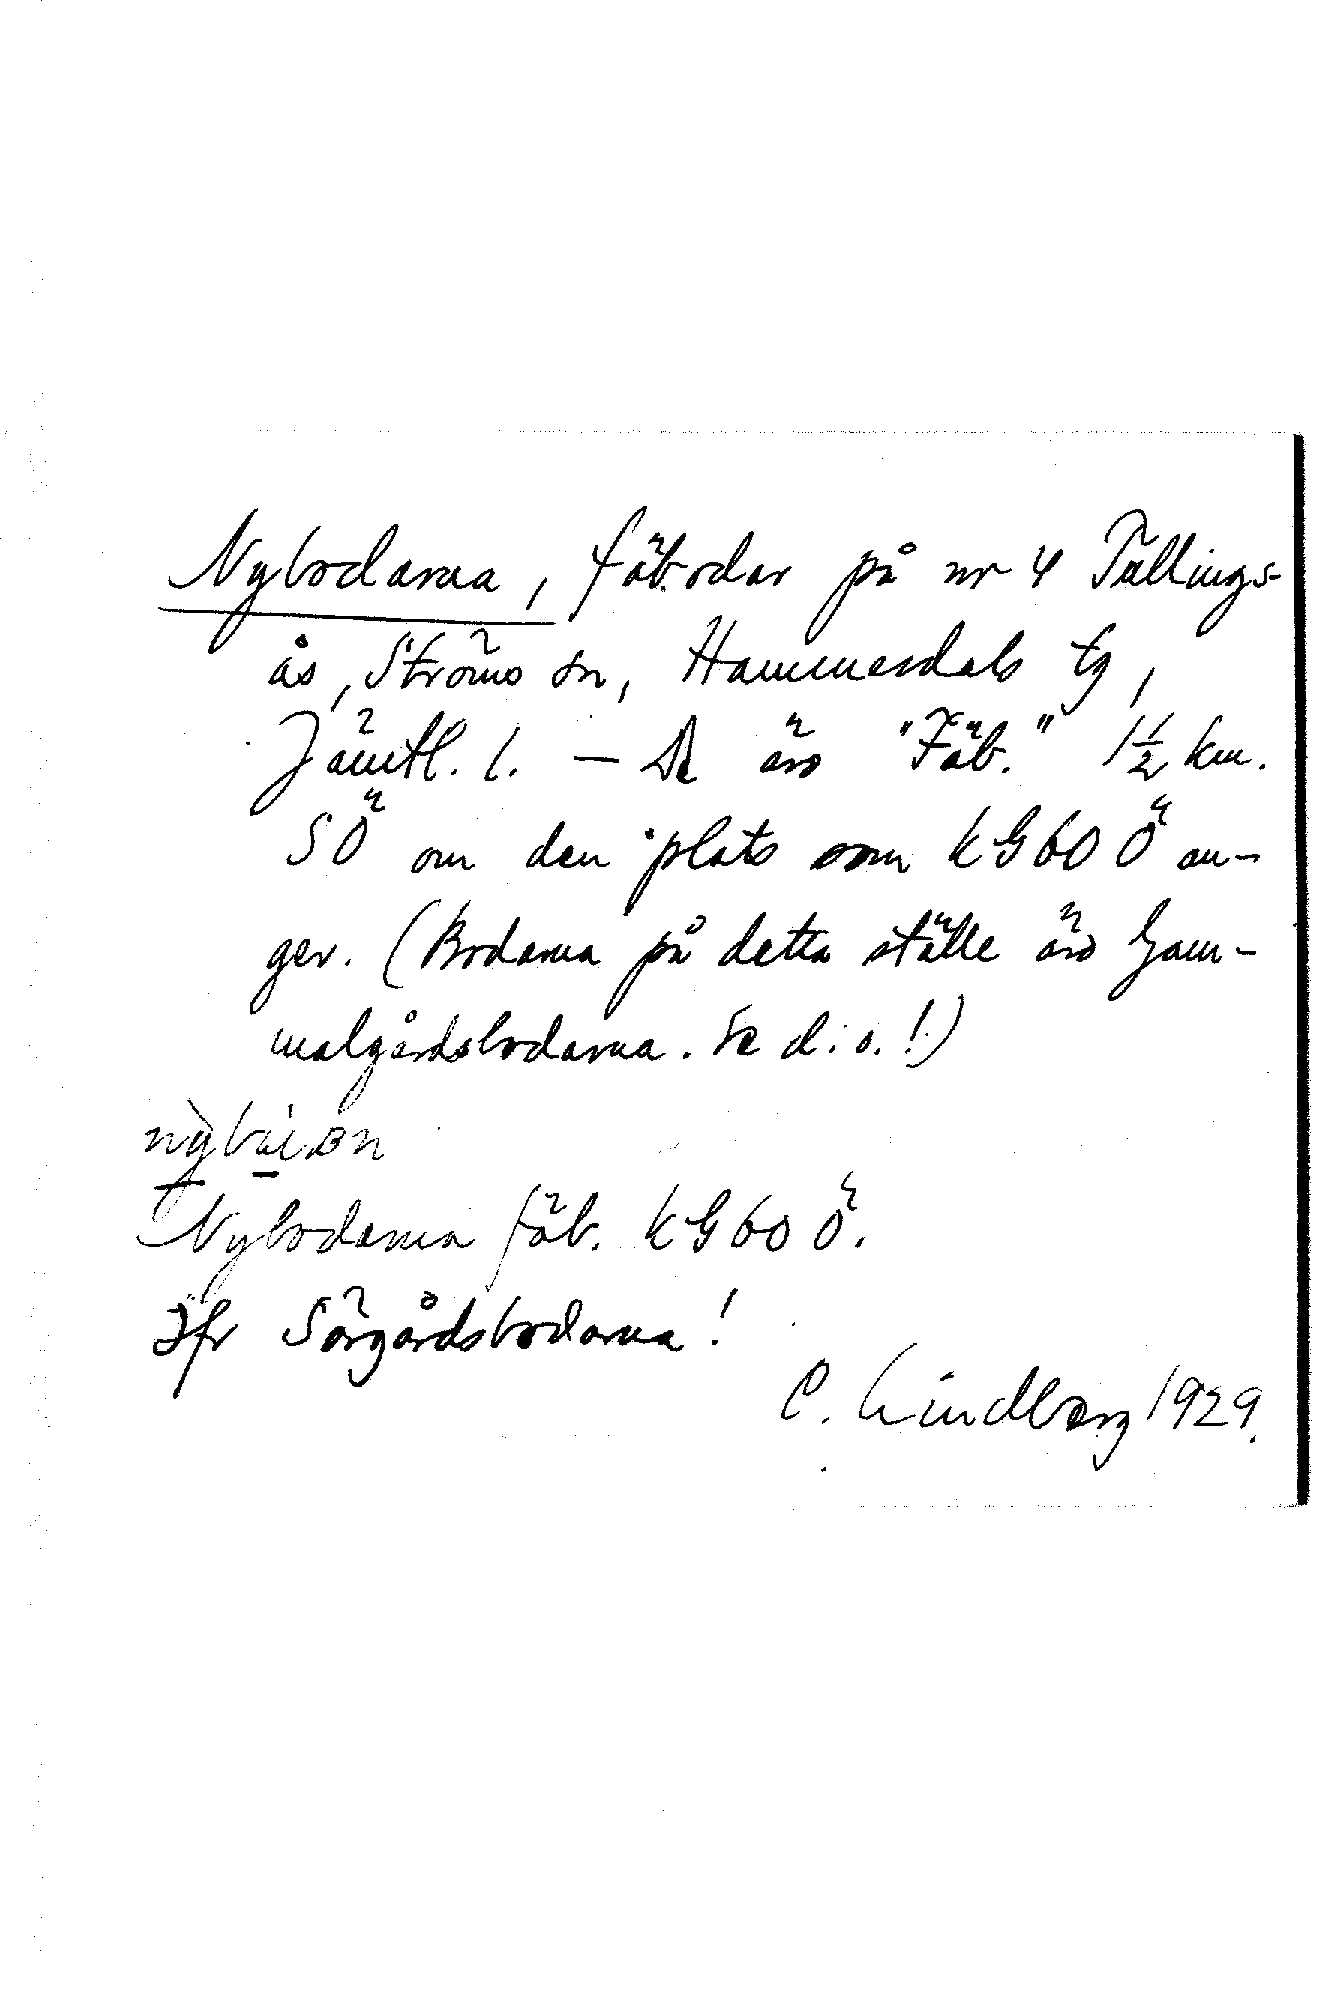 Nybodarna, fäbodar på nr 4 Tullings-
ås, Ströms sn, Hammerdals tg,
Jämtl. l. — De äro "Fäb." 1½ km.
SÖ om den plats som KG 60 Ö an-
ger. (Bodarna på detta ställe äro Gam-
malgårdsbodarna. Se d. o.!)
Nybodarna fäb. KG 60 Ö.
Jfr Sörgårdsbodarna!
C. Lindberg 1929.